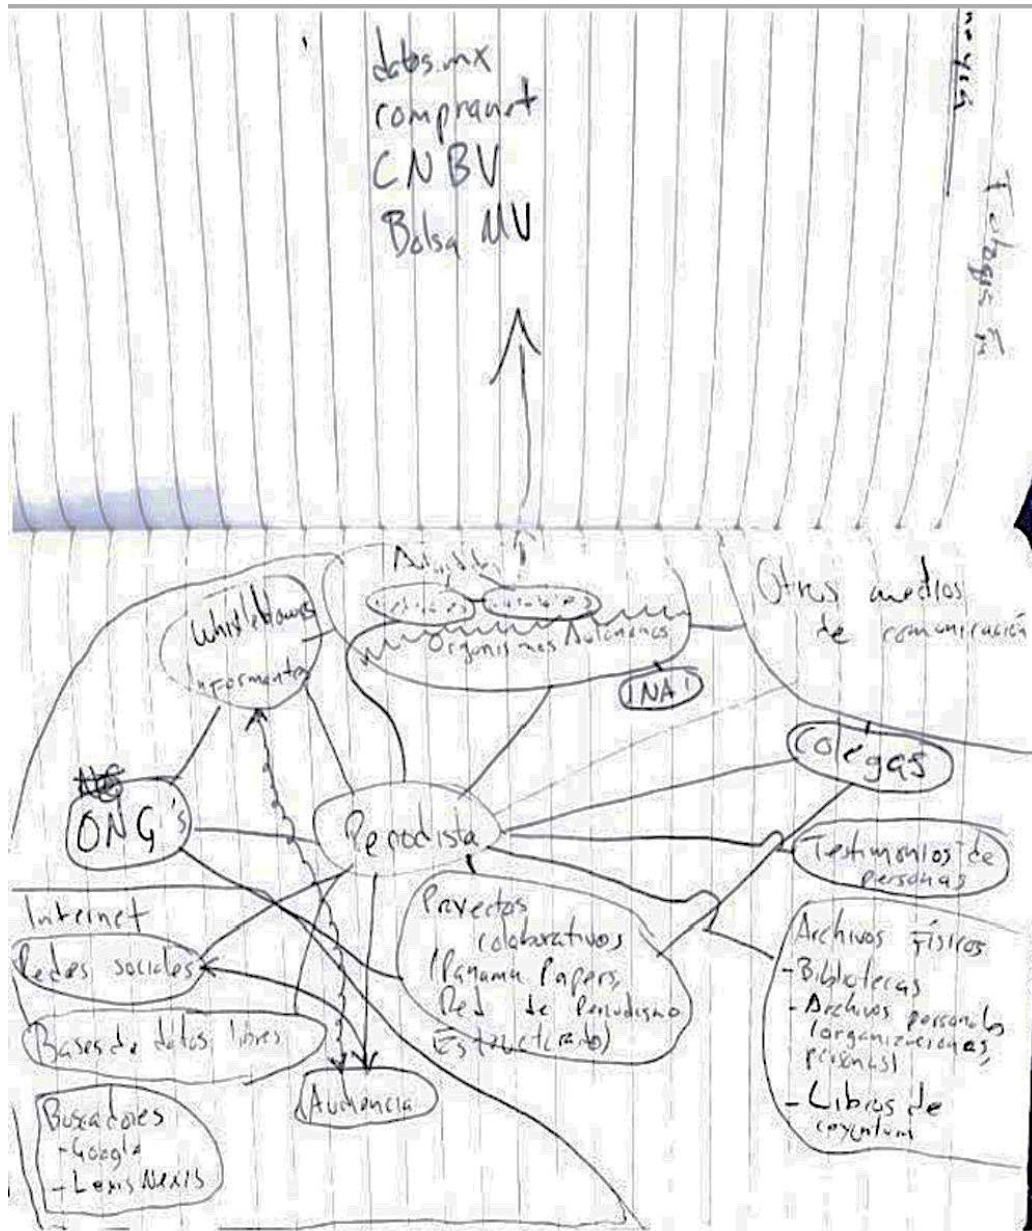 datos.mx
compranet
CNBV
Bolsa MV
Otros medios
de comunicación
Whistleblowers
Informantes
Organismos Autónomos
INAI
Colegas
ONG's
Periodista
Testimonios de
personas
Internet
Redes sociales
Bases de datos libres
Buscadores
- Google
- Lexis Nexis
Audiencia
Proyectos
colaborativos
(Panama Papers,
Red de Periodismo
Estructurado)
Archivos Físicos
- Bibliotecas
- Archivos personales
(organizaciones,
personas)
- Libros de
coyuntura